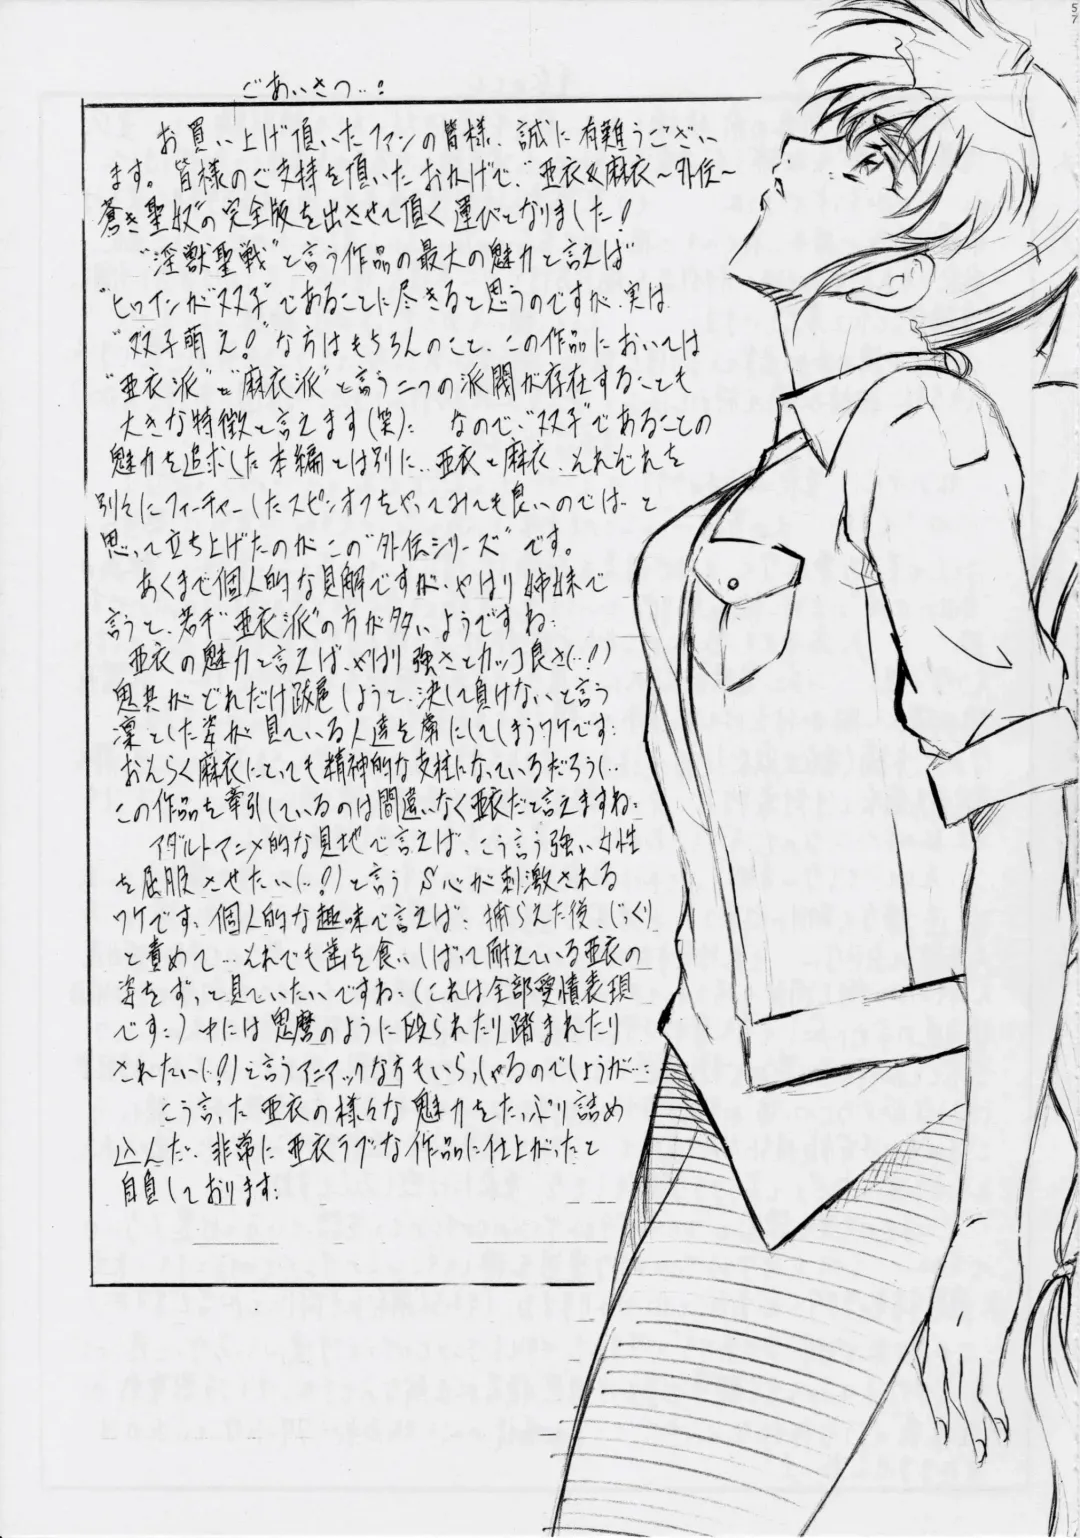 ごあいさつ…:
お買い上げ頂いたファンの皆様、誠に有難うござい
ます。皆様のご支持を頂いたおかげで、"亜衣&麻衣〜外伝〜
蒼き聖奴"の完全版を出させて頂く運びとなりました!
"淫獣聖戦"と言う作品の最大の魅力と言えば
"ヒロインが双子"であることに尽きると思うのですが、実は、
"双子萌え!"な方はもちろんのこと、この作品においては
"亜衣派"と"麻衣派"と言う二つの派閥が存在することも
大きな特徴と言えます(笑): なので、"双子"であることの
魅力を追求した本編とは別に‥亜衣と麻衣、それぞれを
別々にフィーチャーしたスピンオフをやってみても良いのでは、と
思って立ち上げたのがこの"外伝シリーズ"です。
あくまで個人的な見解ですが、やはり姉妹で
言うと、若干"亜衣派"の方が多いようですね:
亜衣の魅力と言えば、やはり強さとカッコ良さ(‥!)
鬼共がどれだけ跋扈しようと、決して負けないと言う
凛とした姿が見ている人達を虜にしてしまうワケです:
おそらく麻衣にとっても精神的な支柱になっているだろうし‥
この作品を牽引しているのは間違いなく亜衣だと言えますね:
アダルトアニメ的な見地で言えば、こう言う強い女性
を屈服させたい(‥!)と言うS心が刺激される
ワケです、個人的な趣味で言えば: 捕らえた後、じっくり
と責めて…それでも歯を食いしばって耐えている亜衣の
姿をずっと見ていたいですね:(これは全部愛情表現
です:)中には鬼麿のように殴られたり踏まれたり
されたい(‥!)と言うマニアックな方もいらっしゃるのでしょうが…:
こう言った亜衣の様々な魅力をたっぷり詰め
込んだ、非常に亜衣ラブな作品に仕上がったと
自負しております:
57